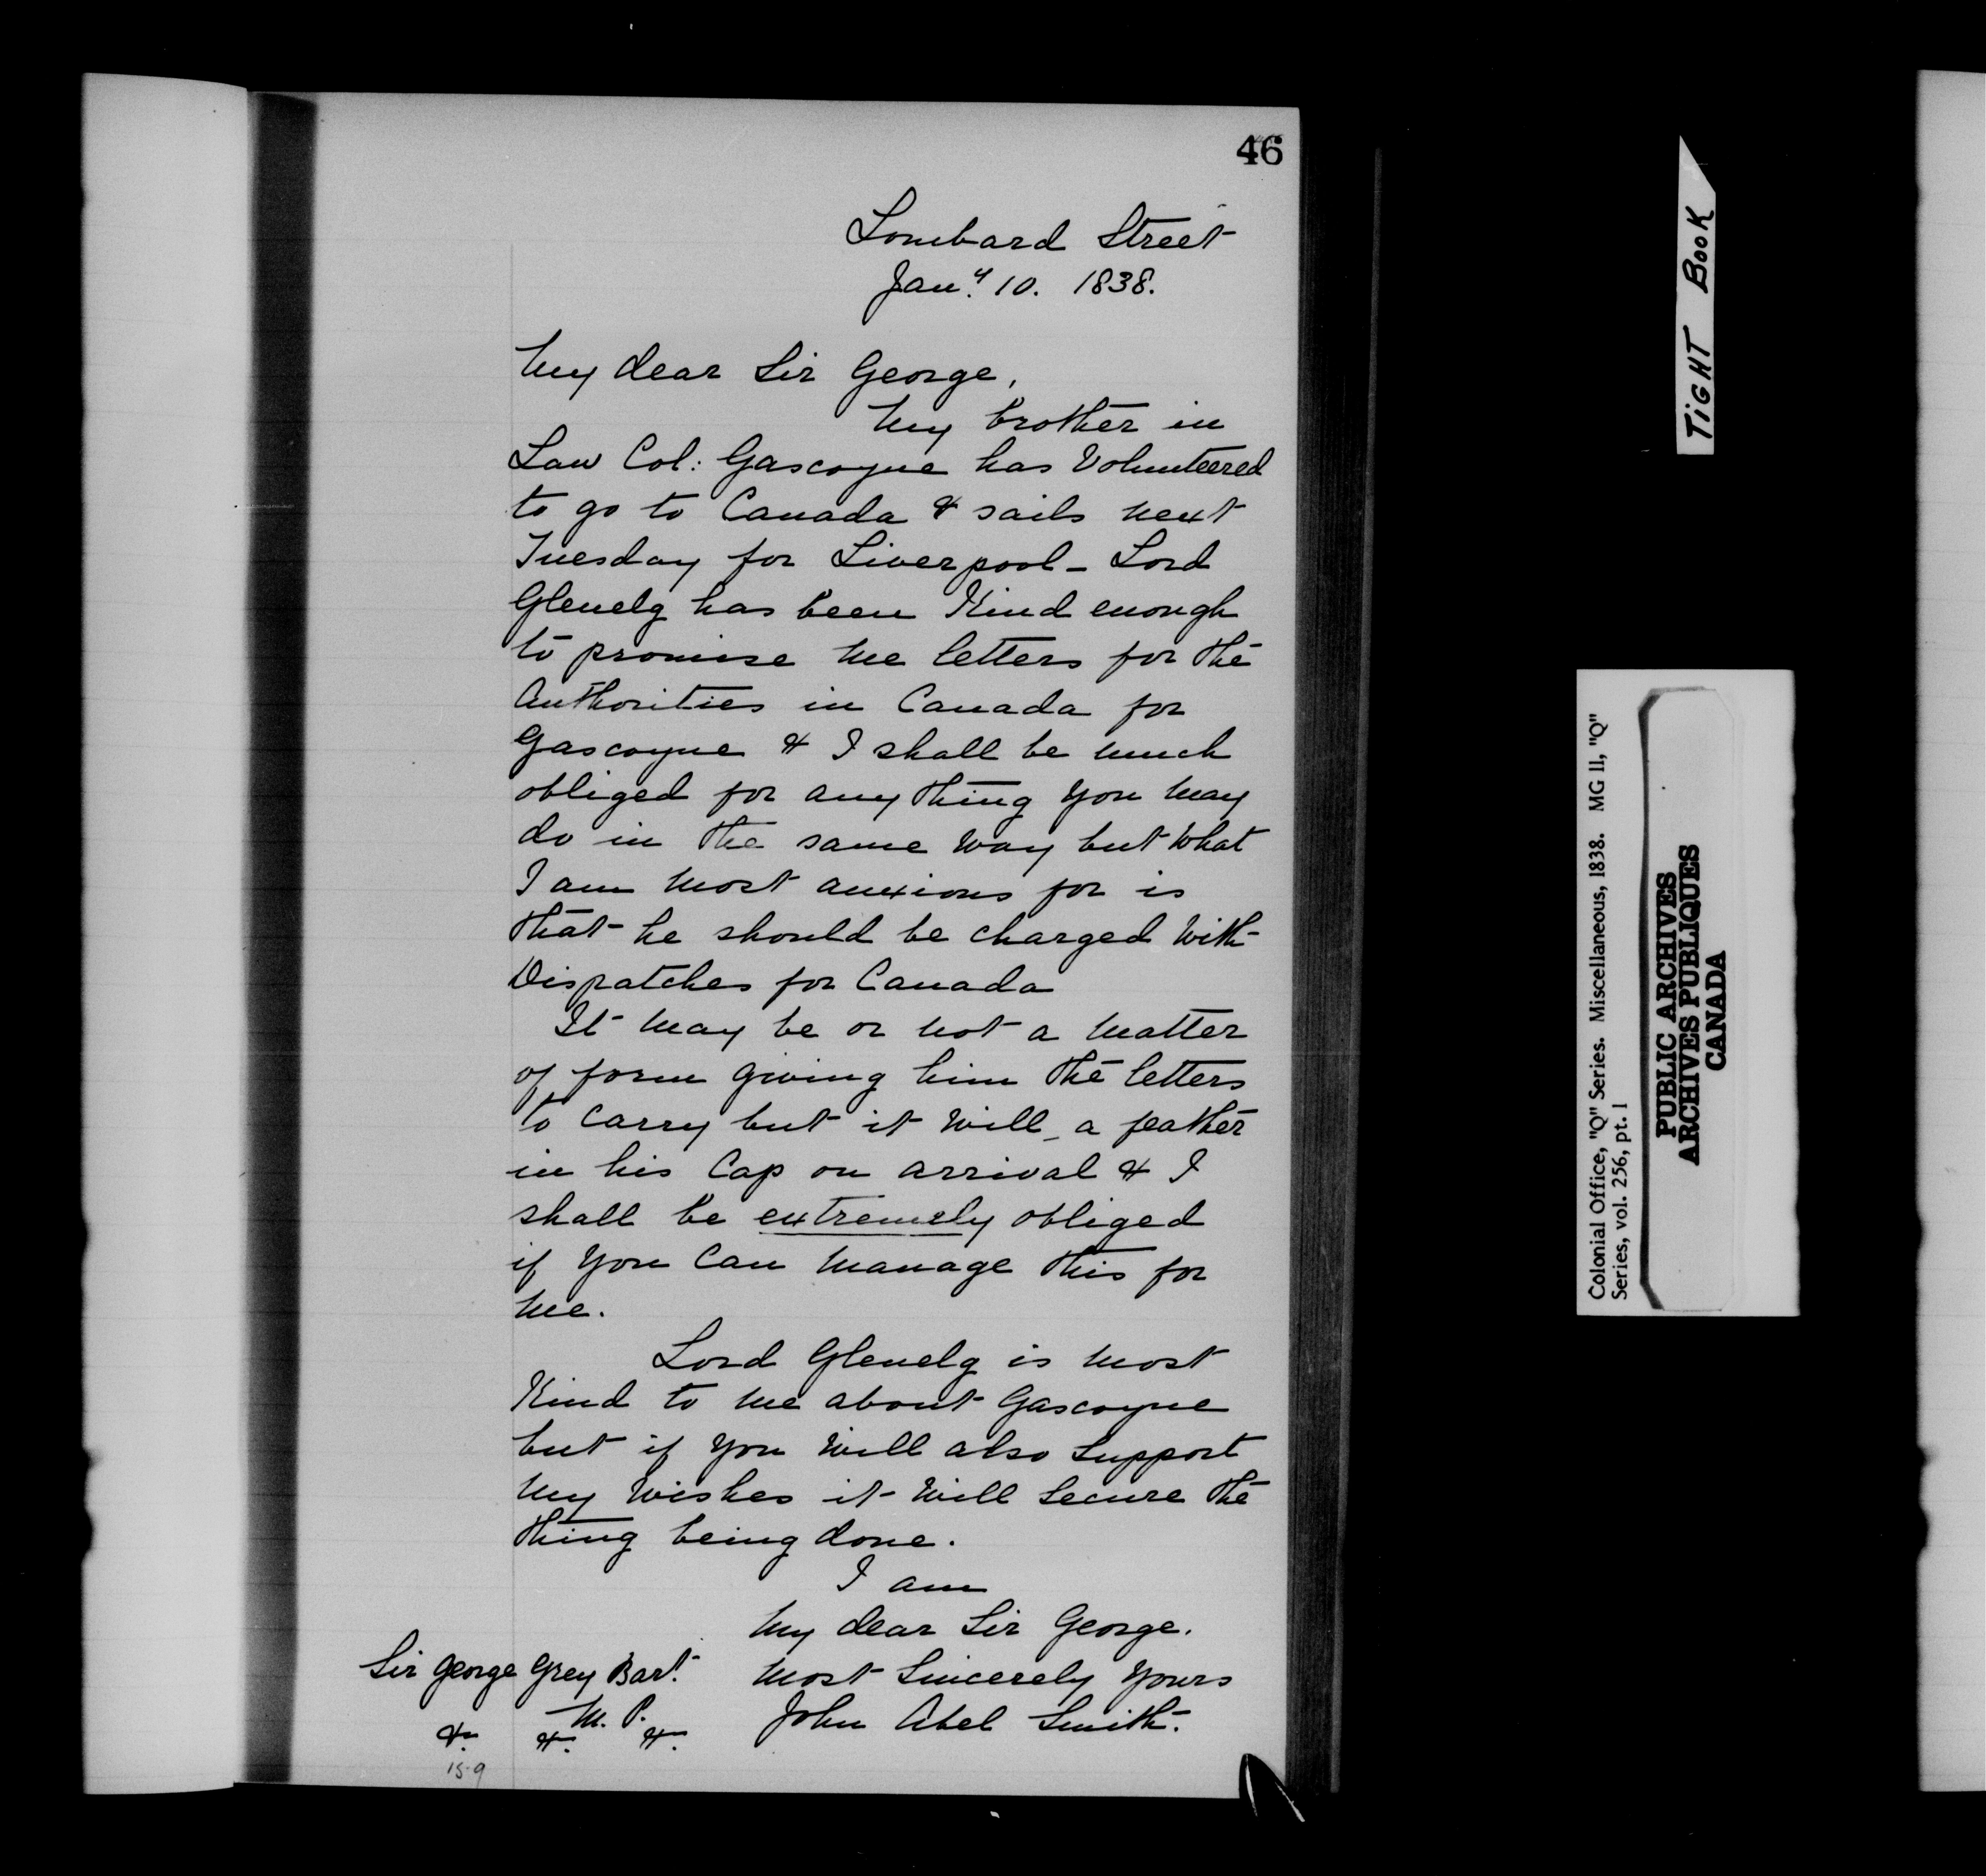 46
Lombard Street
Jany. 10. 1838.
My dear Sir George,
My brother in
Law Col: Gascoyne has Volunteered
to go to Canada & sails next
Tuesday for Liverpool - Lord
Glenelg has been Kind enough
to promise me letters for the
Authorities in Canada for
Gascoyne & I shall be much
obliged for any thing you may
do in the same way but what
I am most anxious for is
that he should be charged with
Dispatches for Canada
It may be or not a matter
of form giving him the letters
to carry but it will _ a feather
in his Cap on arrival & I
shall be extremely obliged
if you can manage this for
me.
Lord Glenelg is most
Kind to me about Gascoyne
but if you will also support
my wishes it will secure the
thing being done.
I am
My dear Sir George.
Most Sincerely Yours
John Abel Smith.
Sir George Grey Bart.
M. P.
&. &. &.
159
TIGHT BOOK
Colonial Office, "Q" Series. Miscellaneous, 1838. MG 11, "Q"
Series, vol. 256, pt. 1
PUBLIC ARCHIVES
ARCHIVES PUBLIQUES
CANADA